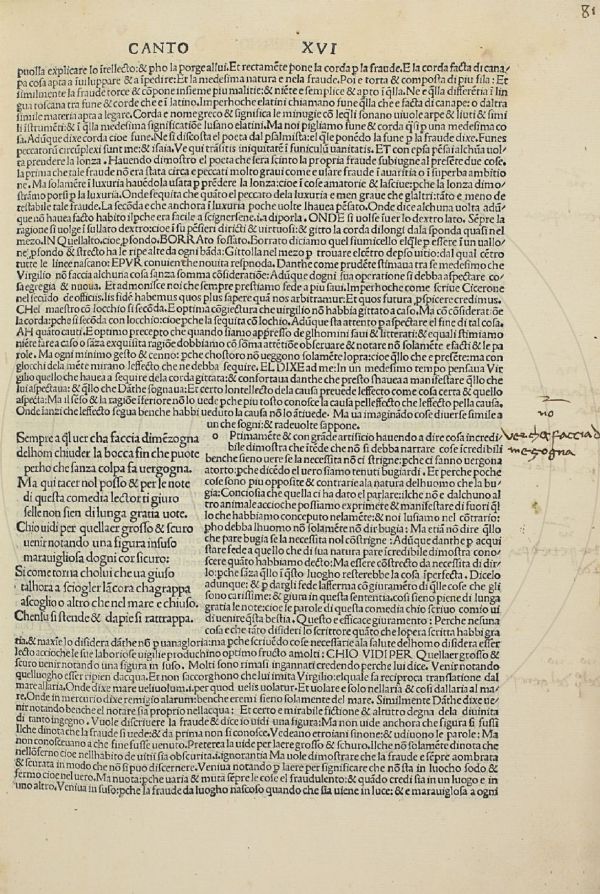 81
CANTO XVI
puolla explicare lo ītellecto: & pho la porge allui. Et rectamēte pone la corda p la fraude. E la corda facta di cana/
pa cosa apta a sviluppare & a īpedire: Et la medesima natura e nela fraude. Poi e torta & composta di piu fila: Et
similmente la fraude torce & cōpone insieme piu malitie: & niēte e semplice & apto ī qlla. Ne e qlla differētia ī lin
gua toscana tra fune & corde che e ī latino. Imperhoche elatini chiamano fune qlla che e facta di canape: o daltra
simile materia apta a legare. Corda e nome greco & significa le minugie cō leqli sonano uiuole arpe & liuti & simi
li istrumēti: & ī qlla medesima significatiōe lusano elatini. Ma noi pigliamo fune & corda qsi p una medesima co
sa. Adūque dixe corda cioe fune. Ne si discosta el poeta dal psalmista: el qle ponēdo la fune p la fraude dixe. Funes
peccatorū circūplexi sunt me: & isaia. Ve qui trāsitis iniquitatē ī funiculū uanitatis. ET con epsa pēsai alchūa uol/
ta prendere la lonza. Hauendo dimostro el poeta che sera scinto la propria fraude subiugne al presēte due cose.
la prima che tale fraude nō era stata circa e peccati molto graui come e usare fraude ī auaritia o ī superba ambitio
ne. Ma solamēte ī luxuria hauēdola usata p prēdere la lonza: cioe ī cose amatorie & lasciue: pche la lonza dimo
strāmo porsi p la luxuria. Onde sequita che quāto el peccato dela luxuria e men graue che glaltri: tāto e meno de
testabile tale fraude. La secōda e che anchora ī luxuria poche uolte lhauea pēsato. Onde dice alchuna uolta adū/
que nō hauea facto habito il pche era facile a scignersene. i. a diporla. ONDE si uolse suer lo dextro lato. Sēpre la
ragione si uolge ī sullato dextro: cioe ī su pēsieri diricti & uirtuosi: & gitto la corda dilongi dala sponda quasi nel
mezo. IN Quellalto. cioe pfondo. BORRAto fossato. Borrato diciamo quel fiumicello el qle p essere ī un uallo
ne, pfondo & strecto ha le ripe alte da ogni bāda: Gittolla nel mezo p trouare el cētro depso uitio: dal qual cētro
tutte le linee nascano. EPVR conuien che nouita responda. Danthe come prudēte stimaua tra se medesimo che
Virgilio nō faccia alchuna cosa sanza somma cōsideratiōe: Adūque dogni sua operatione si debba aspectare co
sa egregia & nuoua. Et admonisce noi che sempre prestiamo fede a piu saui. Imperhoche come scriue Cicerone
nel secūdo deofficiis. Iis fidē habemus quos plus sapere quā nos arbitramur: Et quos futura pspicere credimus.
CHel maestro cō lochio si secōda. E optima cōgiectura che virgilio nō habbia gittato a caso. Ma cō cōsideratiōe
la corda: pche si secōda con locchio: cioe pche la seguita cō lochio. Adūque sta attento p aspectare el fine di tal cosa.
AH quāto cauti. E optimo precepto che quando siamo appresso de glhomini saui & litterati: & equali stimiamo
niēte fare a caso o sāza exquisita ragiōe dobbiamo cō sōma attētiōe obseruare & notare nō solamēte efacti & le pa
role. Ma ogni minimo gesto & cenno: pche chostoro nō ueggono solamēte lopra: cioe qllo che e presēte: ma con
glocchi dela mēte mirano leffecto che ne debba sequire. EL DIXE ad me: In un medesimo tempo pensaua Vir
gilio quello che hauea a sequire dela corda gittata: & confortaua danthe che presto shauea a manifestare qllo che
lui aspectaua: & qllo che Dāthe sognaua: Et certo lontellecto dela causa preuede leffecto come cosa certa & quello
aspecta: Ma il sēso & la ragiōe īferiore nō lo uede pche piu tosto conosce la causa pelleffecto che leffecto pella causa.
Onde īanzi che leffecto segua benche habbi ueduto la causa nō lo ātiuede. Ma ua imaginādo cose diuerse simile a
un che sogni: & rade uolte sappone.
Sempre a ql uer cha faccia dimēzogna
delhom chiuder la bocca fin che puote
perho che sanza colpa fa uergogna.
Ma qui tacer nol posso & per le note
di questa comedia lector ti giuro
selle non sien di lunga gratia uote.
Chio uidi per quellaer grosso & scuro
uenir notando una figura in suso
marauigliosa dogni cor sicuro:
Si come torna cholui che ua giuso
talhora a scioglier lācora chagrappa
ascoglio o altro che nel mare e chiuso.
Chensu si stende & da pie si rattrappa.
o Ptimamēte & con grāde artificio hauendo a dire cosa incredi
bile dimostra che itēde che nō si debba narrare cose īcredibili
benche sieno uere se la necessita nō ci strigne: pche ci fanno uergona
a torto: pche dicēdo el uero siamo tenuti bugiardi. Et perche poche
cose sono piu opposite & contrarie ala natura delhuomo che la bu
gia: Conciosia che quella ci ha dato el parlare: ilche nō e dalchuno al
tro animale accioche possiamo exprimere & manifestare di fuori ql
lo che habbiamo conceputo nelamēte: & noi lusiamo nel cōtrario:
pho debba lhuomo nō solamēte nō dir bugia: Ma etiā nō dire qllo
che pare bugia se la necessita nol cōstrigne: Adūque danthe p acqui
stare fede a quello che di sua natura pare īcredibile dimostra cono/
scere quāto habbiamo decto: Ma essere cōstrecto da necessita di dir/
lo: pche sāza qsto ī qsto luogho resterebbe la cosa īperfecta. Dicelo
adunque: & p dargli fede lafferma cō giuramēto di qlle cose che gli
sono carissime: & giura in questa sententia. cosi sieno piene di lunga
gratia le note: cioe le parole di questa comedia chio scriuo comio ui/
di uenire questa bestia. Questo e efficace giuramento: Perche nesuna
cosa e che tāto disideri lo scrittore quāto che lopera scritta habbi gra
tia. & maxīe lo disidera dāthe nō p uanagloria: ma pche scriuēdo cose necessarie ala salute delhomo disidera esser
lecto accioche le sue laboriose uigilie produchino optimo fructo amolti: CHIO VIDI PER. Quellaer grosso &
scuro uenir notando una figura in suso. Molti sono rimasi ingannati credendo perche lui dice. Venir notando
quel luogho esser ripien dacqua. Et non saccorghono che lui imita Virgilio: elquale fa reciproca translatione dal
mare allaria. Onde dixe mare ueliuolum. i. per quod uelis uolatur. Et uolare e solo nellaria & cosi dallaria al ma/
re. Onde in mercurio dixe remigio alarum: benche eremi sieno solamente del mare. Similmente Dāthe dixe ue/
nir notando benche el notare sia proprio nellacqua: Et certo e mirabile fictione & altutto degna dela diuinita
di tanto ingegno. Vuole discriuere la fraude & dice io uidi una figura: Ma non uide anchora che figura si fussi
Ilche dinota che la fraude si uede: & da prima non si conosce. Vedeano etroiani sinone: & udiuono le parole: Ma
non conosceuano a che fine fusse uenuto. Preterea la uide per laere grosso & schuro. Ilche nō solamēte dinota che
nello īferno cioe nellhabito de uitii sia obscurita. i. ignorantia Ma uole dimostrare che la fraude e sēpre aombrata
& scurata in modo che nō si puo discernere. Veniua notando p laere per significare che nō sta in luocho sodo &
fermo cioe nel uero. Ma nuota: pche uaria & muta sēpre le cose el fraudulento: & quādo credi sia in un luogo e in
uno altro. Veniua in suso: pche la fraude da luogho nascoso quando che sia uiene in luce: & e marauigliosa a ogni
no
ver che faccia di
mezogna